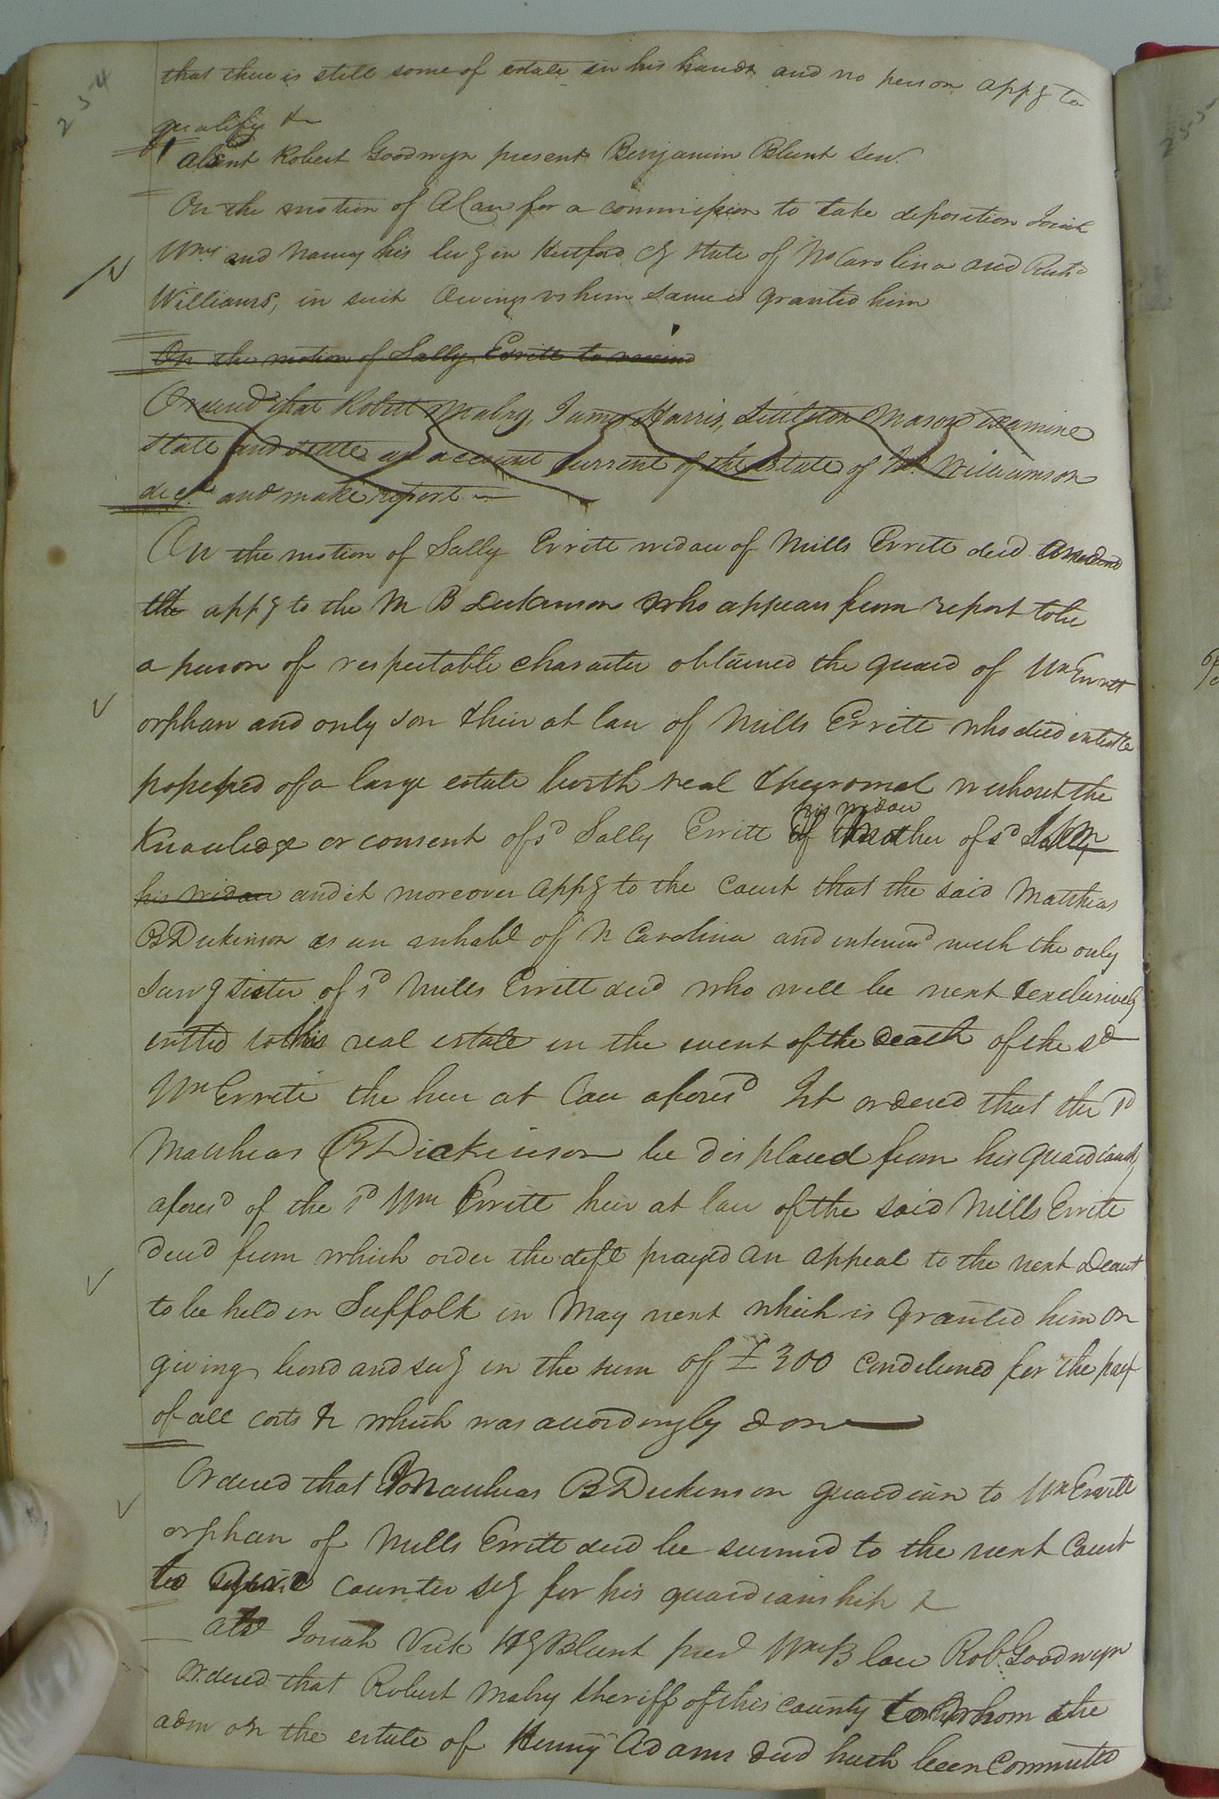 254
that there is still some of estate in his hands and no person appg to
qualify &
absent Robert Goodwyn present Benjamin Blunt Senr
On the motion of A Law for a commission to take deposition Josiah
Wms and Nancy his living in Hertford Cy State of No Carolina and
Williams, in suit Owings vs him same is granted him
On the motion of Sally Evritt to
Ordered that Robert Mabry, James Harris, Littleton Mason examine
state and settle an account current of the estate of Williamson
decd and make report
On the motion of Sally Evritt widow of Mills Evritt decd
the appg to the M B Dickinson who appears from report to be
a person of respectable character obtained the guard of Wm Evritt
orphan and only son & heir at law of Mills Evritt who died intestate
possessed of a large estate both real & personal without the
his widow
Knowledge or consent of sd Sally Evritt mother of sd
his widow and it moreover appg to the Court that the said Matthias
B Dickinson is an inhabt of N Carolina and intermd with the only
living sister of sd Mills Evritt decd who will be next & exclusively
entitled to his real estate in the event of the death of the sd
Wm Evritt the heir at law aforesd It ordered that the sd
Matthias B Dickinson be displaced from his guardians
aforesd of the sd Wm Evritt heir at law of the said Mills Evritt
decd from which order the deft prayed an appeal to the next D Court
to be held in Suffolk in May next which is granted him on
giving bond and secy in the sum of £300 conditioned for the pay
of all costs & which was accordingly done
Ordered that Matthias B Dickinson guardian to Wm Evritt
orphan of Mills Evritt decd be sumd to the next Court
to give counter secy for his guardianship &
Josiah Vick Hy Blunt presd Wm B law Rob Goodwyn
Ordered that Robert Mabry sheriff of this county to whom the
adm on the estate of Henry Adams decd hath been committed
255